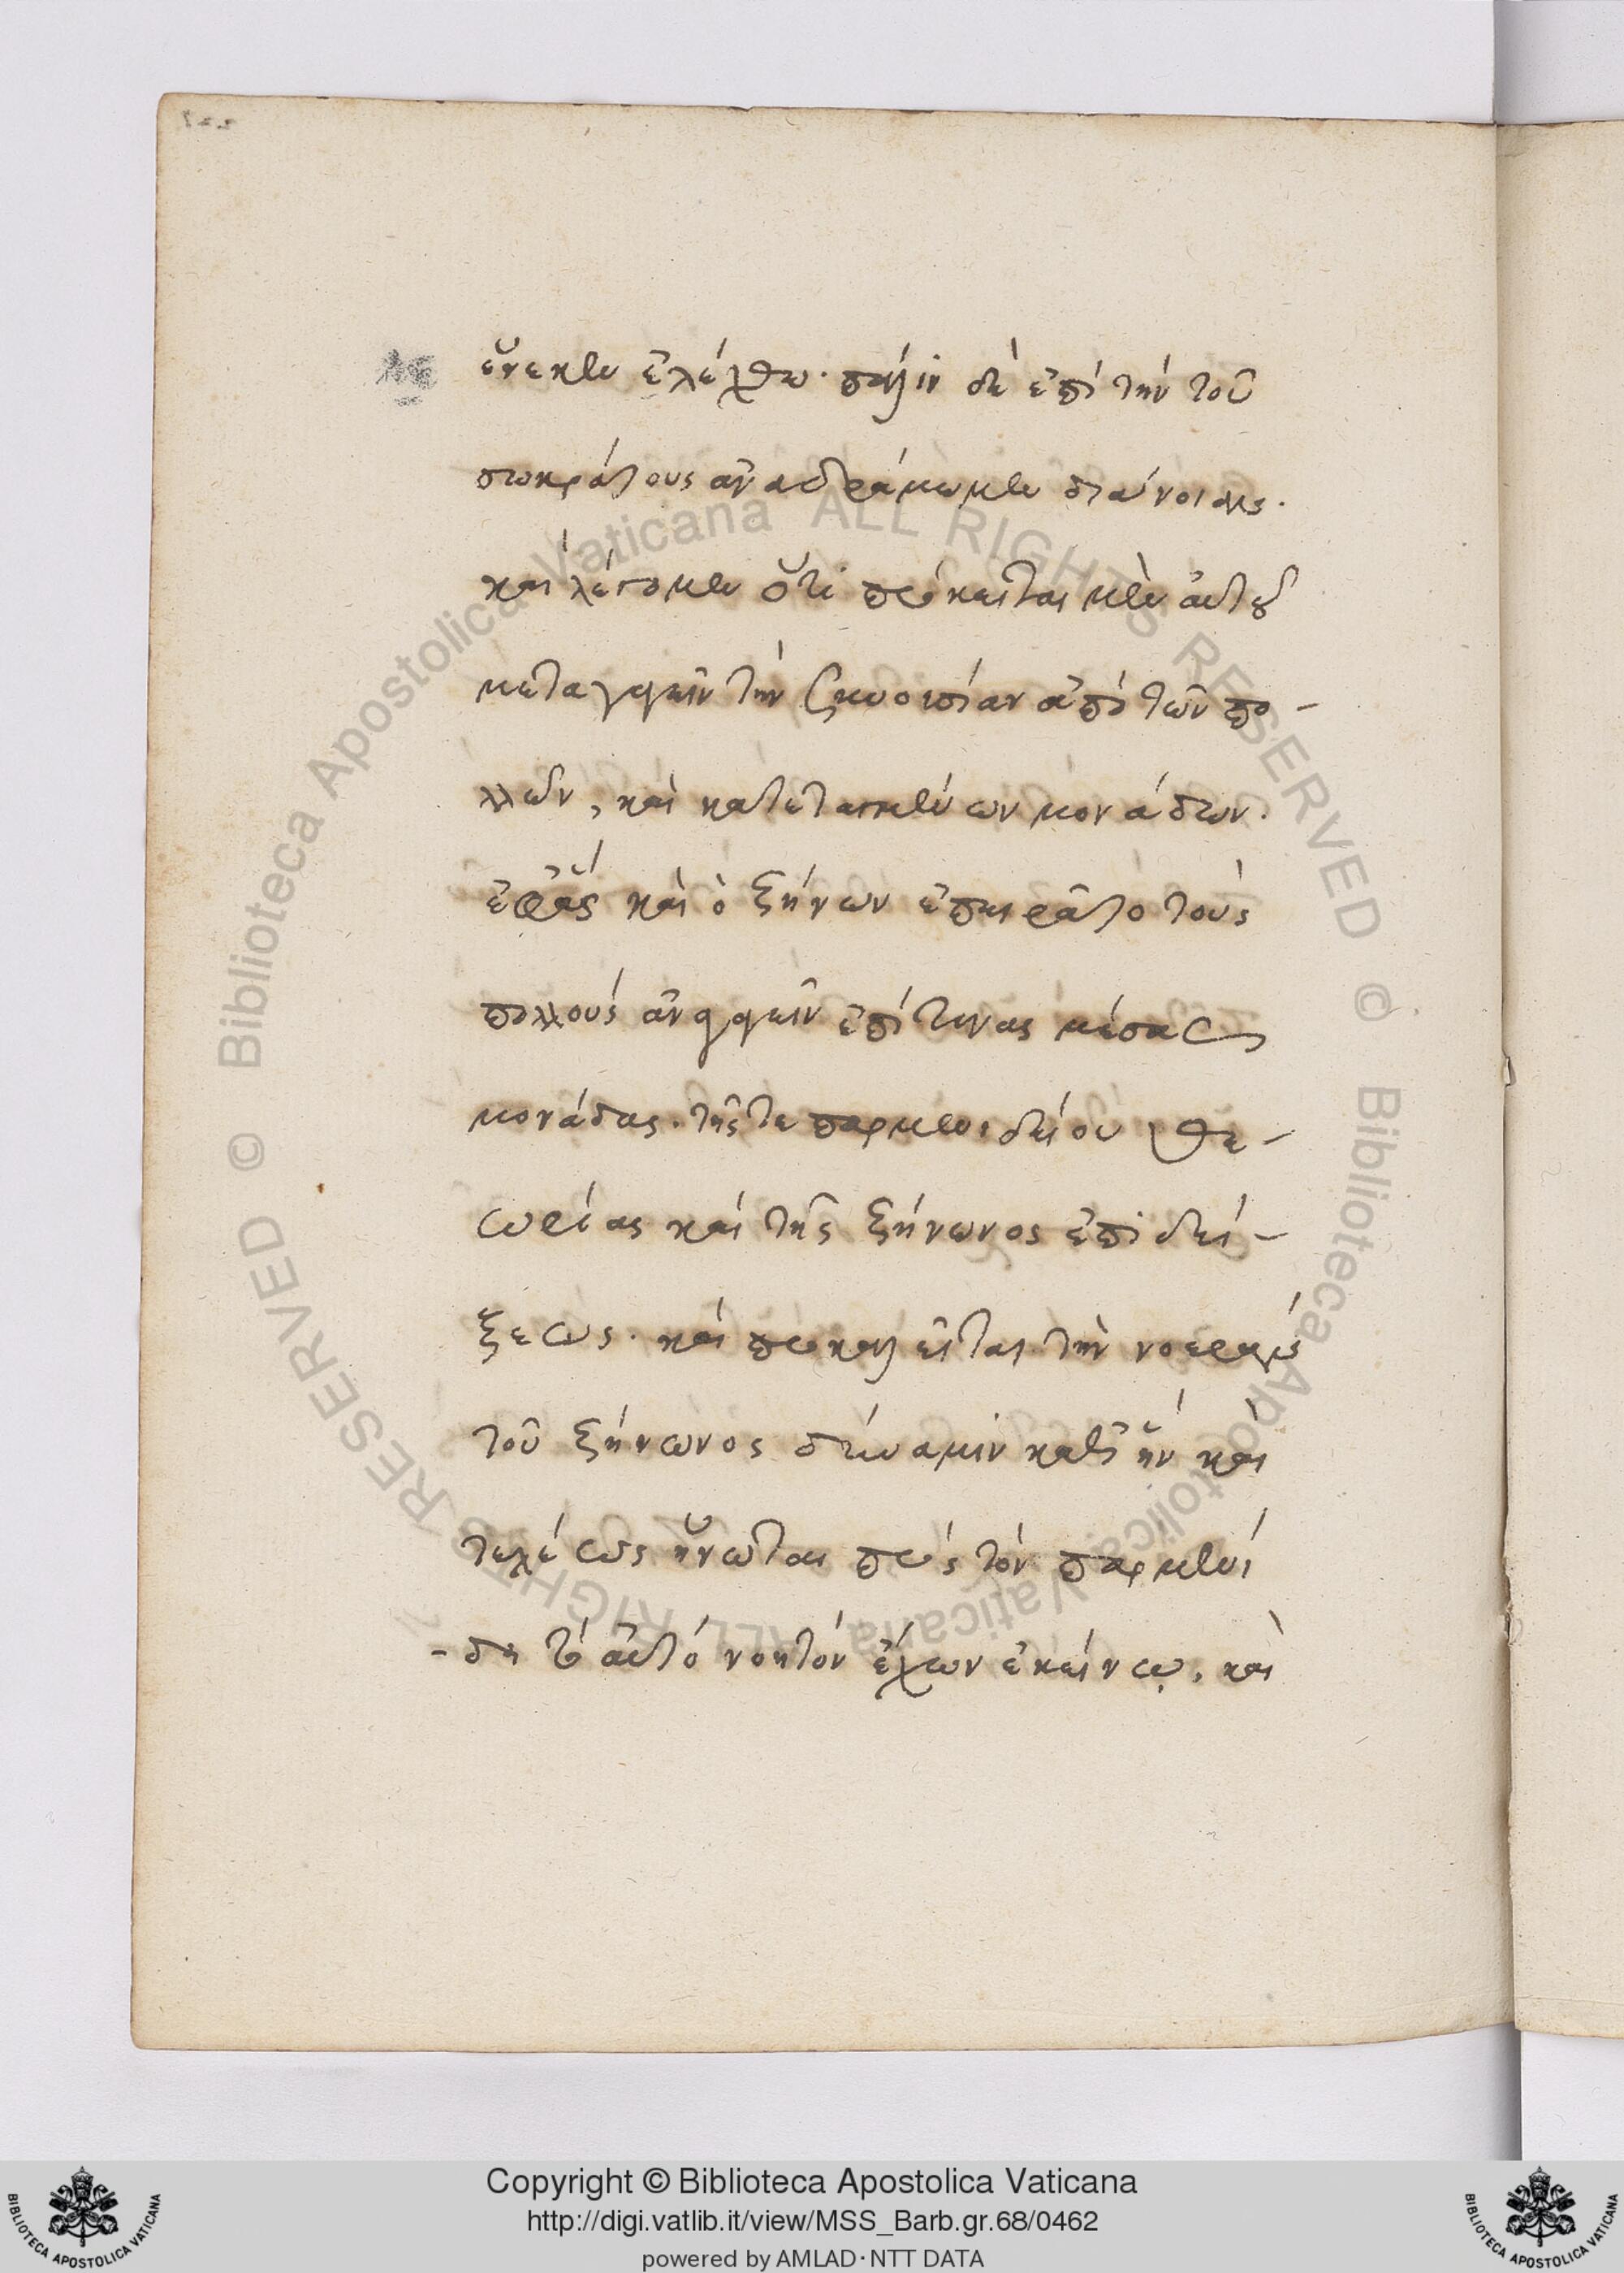 ἕνεκεν ἐλέχθω. πάλιν δὲ ἐπὶ τὴν τοῦ
σωκράτους ἀναδράμωμεν διάνοιαν.
καὶ λέγομεν ὅτι πρόκειται μὲν αὐτῷ
μεταγαγεῖν τὴν ζητουσίαν ἀπὸ τῶν πο-
λλῶν, καὶ κατατεταγμένων μονάδων.
ἐφ' ἃς καὶ ὁ ζήνων ἐπειρᾶτο τοὺς
πολλοὺς ἀναγαγεῖν ἐπί τινας μέσας
μονάδας. τῆς τε παρμενιδείου θε-
ωρίας καὶ τῆς ζήνωνος ἐπιδεί-
ξεως. καὶ προκαλεῖται τὴν νοερὰν
τοῦ ζήνωνος δύναμιν καθ' ἣν καὶ
τελέως ἥνωται πρὸς τὸν παρμενί
-δη τὸ αὐτὸ νοητὸν ἔχων ἐκείνῳ, καὶ
Copyright © Biblioteca Apostolica Vaticana
http://digi.vatlib.it/view/MSS_Barb.gr.68/0462
powered by AMLAD·NTT DATA
BIBLIOTECA APOSTOLICA VATICANA
BIBLIOTECA APOSTOLICA VATICANA
© Biblioteca Apostolica Vaticana ALL RIGHTS RESERVED
© Biblioteca Apostolica Vaticana ALL RIGHTS RESERVED